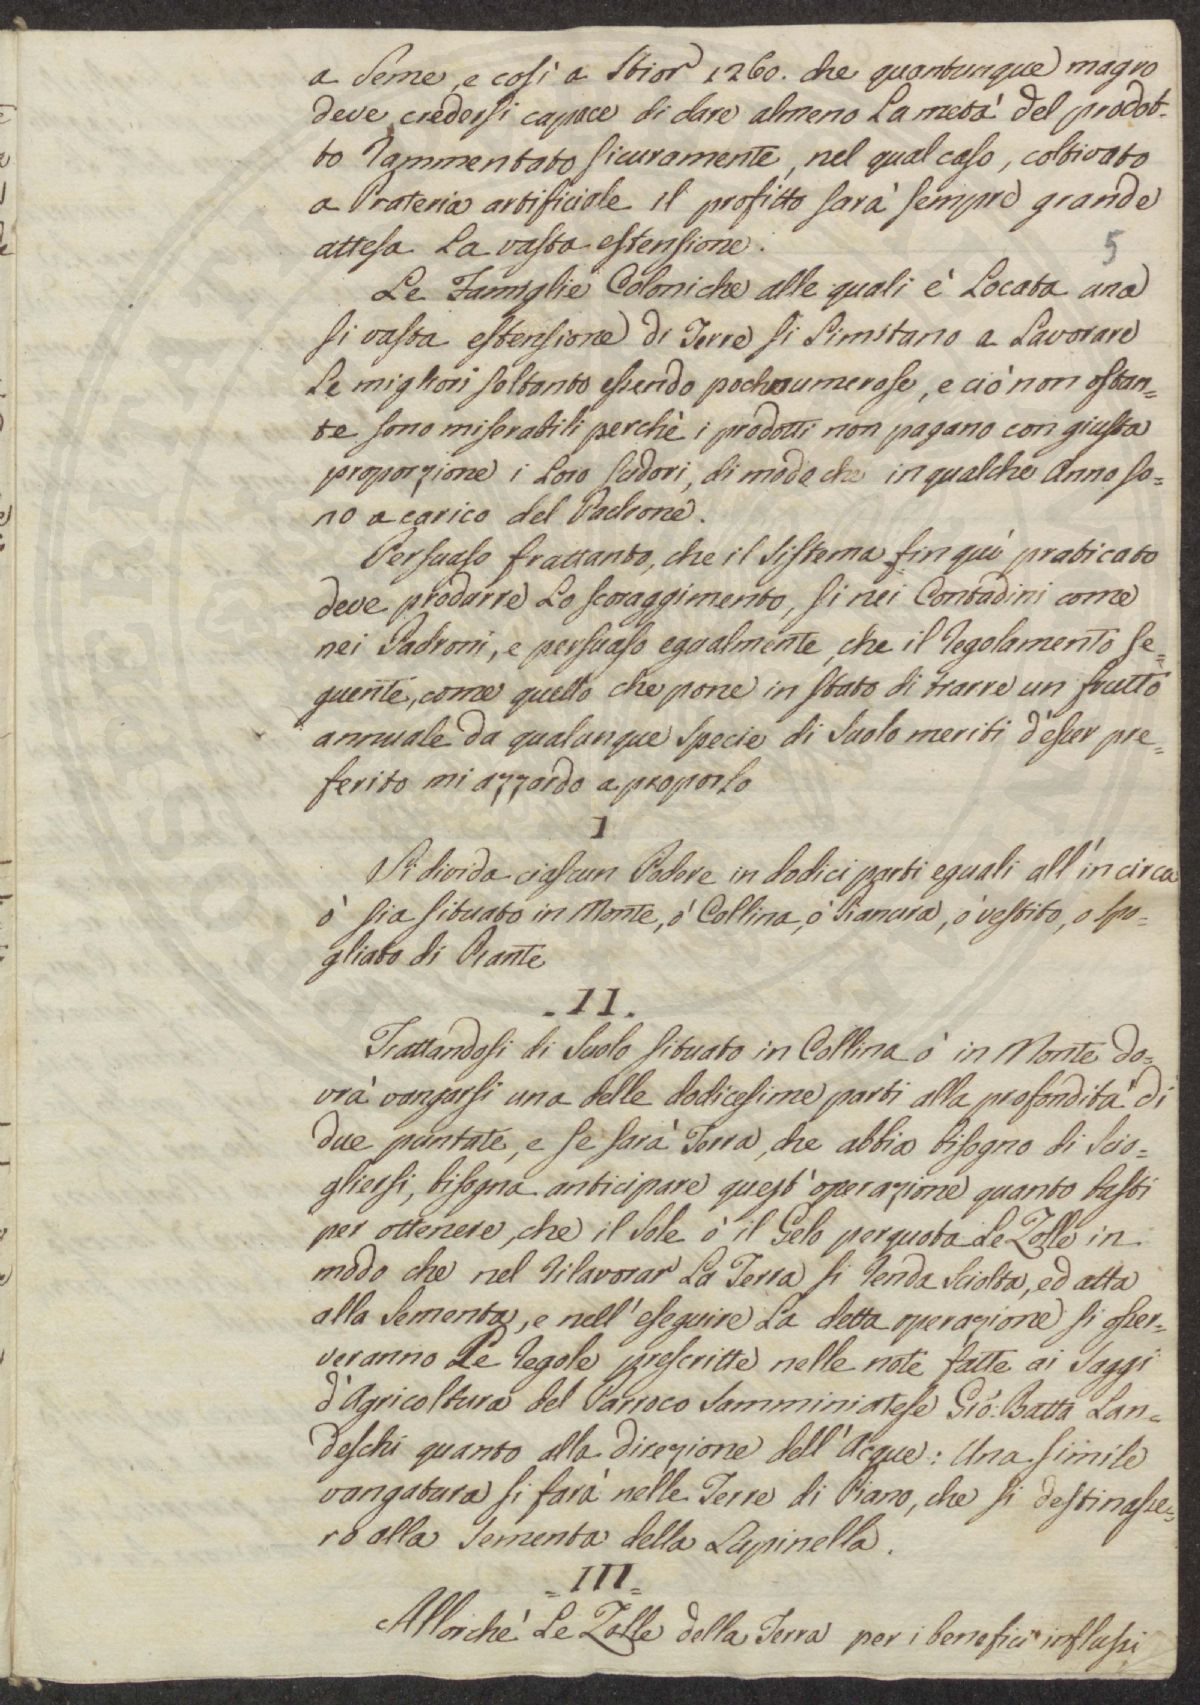 a Seme, e così a Stior 1260. che quantunque magro
deve credersi capace di dare almeno La metà del prodot-
to Rammentato sicuramente, nel qual caso, coltivato
a Prateria artificiale il profitto sarà sempre grande
attesa La vasta estensione.
5
Le Famiglie Coloniche alle quali è Locata una
si vasta estensione di Terre si Limitano a Lavorare
Le migliori soltanto essendo poche numerose, e ciò non ostan=
te sono miserabili perchè i prodotti non pagano con giusta
proporzione i Loro Sudori, di modo che in qualche Anno so=
no a carico del Padrone.
Persuaso frattanto, che il Sistema fin quì praticato
deve produrre Lo scoraggimento, si nei Contadini come
nei Padroni, e persuaso egualmente, che il Regolamento se=
guente, come quello che pone in stato di trarre un frutto
annuale da qualunque Specie di Suolo meriti d'esser pre=
ferito mi azzardo a proporlo
I
Si divida ciascun Podere in dodici parti eguali all'incirca
ò sia situato in Monte, ò Collina, ò Pianura, ò vestito, o spo-
gliato di Piante
-II.
Trattandosi di Suolo situato in Collina ò in Monte do=
vrà vangarsi una delle dodicesime parti alla profondità di
due puntate, e se sarà Terra, che abbia bisogno di Scio=
gliersi, bisogna anticipare quest'operazione quanto basti
per ottenere, che il Sole ò il Gelo perquota Le Zolle in
modo che nel Rilavorar La Terra si Renda Sciolta, ed atta
alla Sementa, e nell'eseguire La detta operazione si osser=
veranno Le Regole prescritte nelle note fatte ai Saggi
d'Agricoltura del Parroco Samminiatese Gio: Batta Lan=
deschi quanto alla direzione dell'Acque: Una simile
vangatura si farà nelle Terre di Piano, che si destinasse=
ro alla Sementa della Lupinella.
=III=
Allorchè Le Zolle della Terra per i benefici influssi